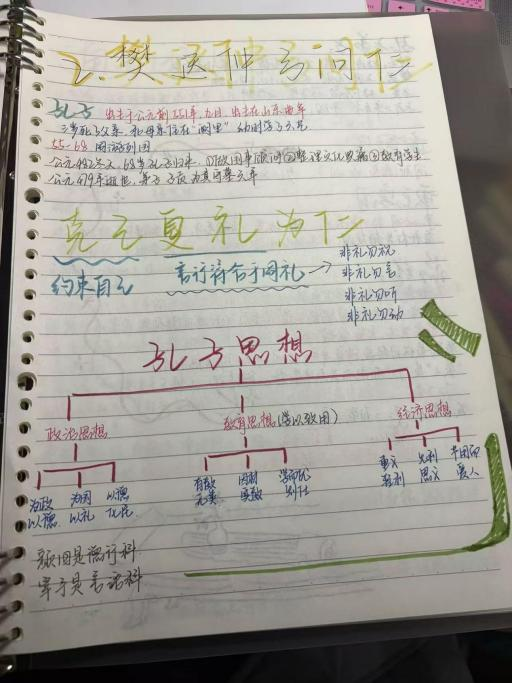 2. 樊迟仲弓问仁
孔子 出生于公元前551年,九月,出生在山东曲阜
三岁死了父亲,和母亲住在“阙里” 幼时学了六艺
55-68 周游列国
公元前484年,68岁孔子归来,①做国事顾问②整理文化典籍③教育学生
公元前479年逝世,弟子 子贡为其守墓六年
克己复礼为仁
约束自己 言行符合于周礼→
非礼勿视
非礼勿言
非礼勿听
非礼勿动
孔子思想
政治思想 教育思想(学以致用) 经济思想
为政以德 为国以礼 以德化民
有教无类 因材施教 学而优则仕
重义轻利 见利思义 节用而爱人
颜回是德行科
宰予是言语科